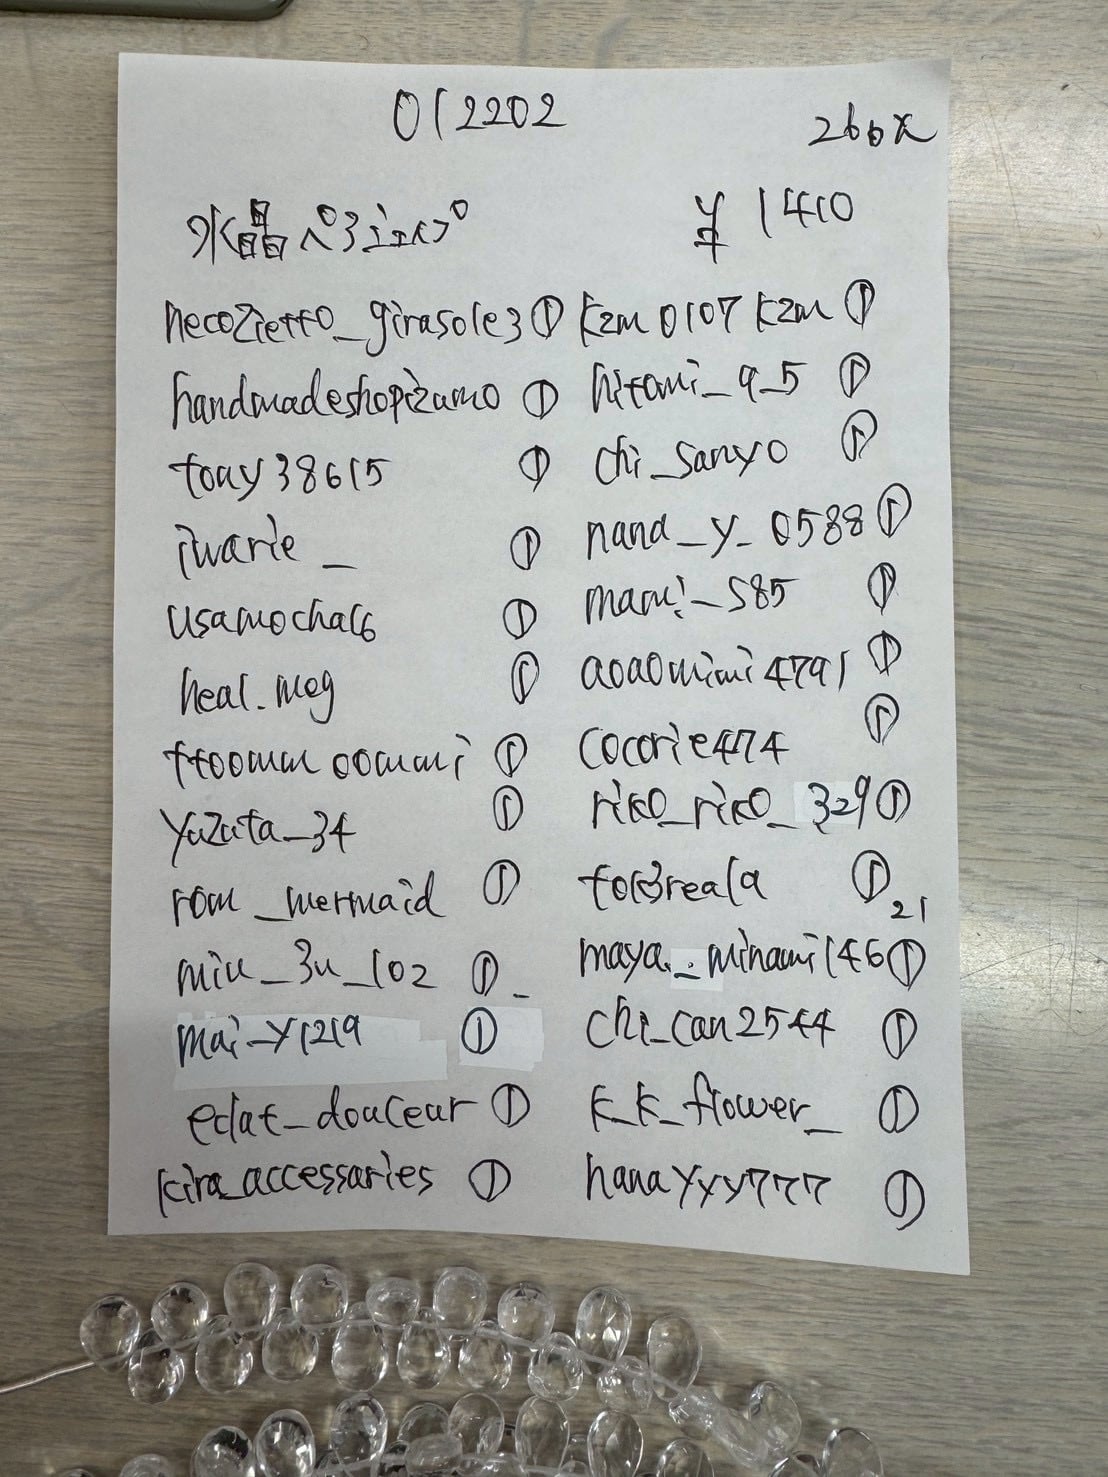 012202
26本
水晶ペアシェイプ
¥1410
necozietto_girasole3 ①
handmadeshopizumo ①
tomy38615 ①
iwarie_ ①
usamocha16 ①
heal.meg ①
ttoomm oommi ①
yuzuta_34 ①
rom_mermaid ①
miu_3u_102 ①
mai_y1219 ①
eclat_douceur ①
kira_accessaries ①
kzm0107kzm ①
hitomi_9_5 ①
chi_sanyo ①
nana_y_0588 ①
mami_585 ①
aoaomimi4791 ①
cocorie474 ①
riko_riko_329 ①
①21
maya._minami146 ①
chi_can2544 ①
k_k_flower_ ①
hanayyy777 ①